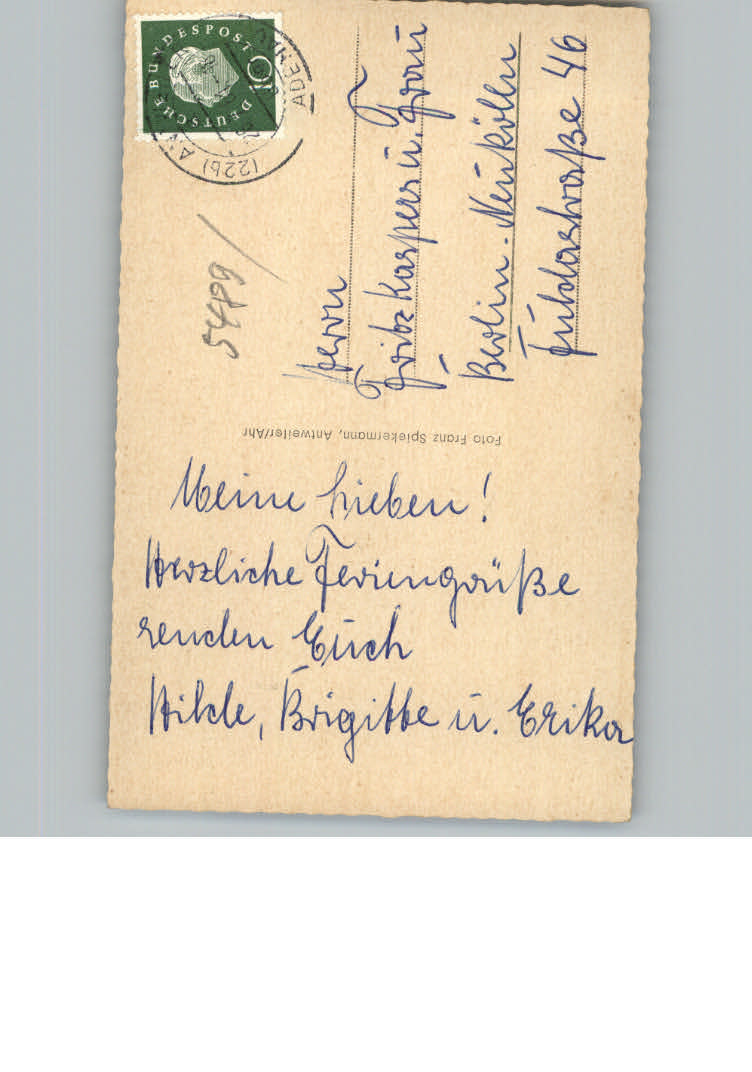 DEUTSCHE BUNDESPOST
10
(22b)
ADENAU
5489
Herrn
Fritz Kaspers u. Frau
Berlin-Neukölln
Fuldastraße 46
Foto Franz Spiekermann, Antweiler/Ahr
Meine Lieben!
Herzliche Feriengrüße
senden Euch
Hilde, Brigitte u. Erika